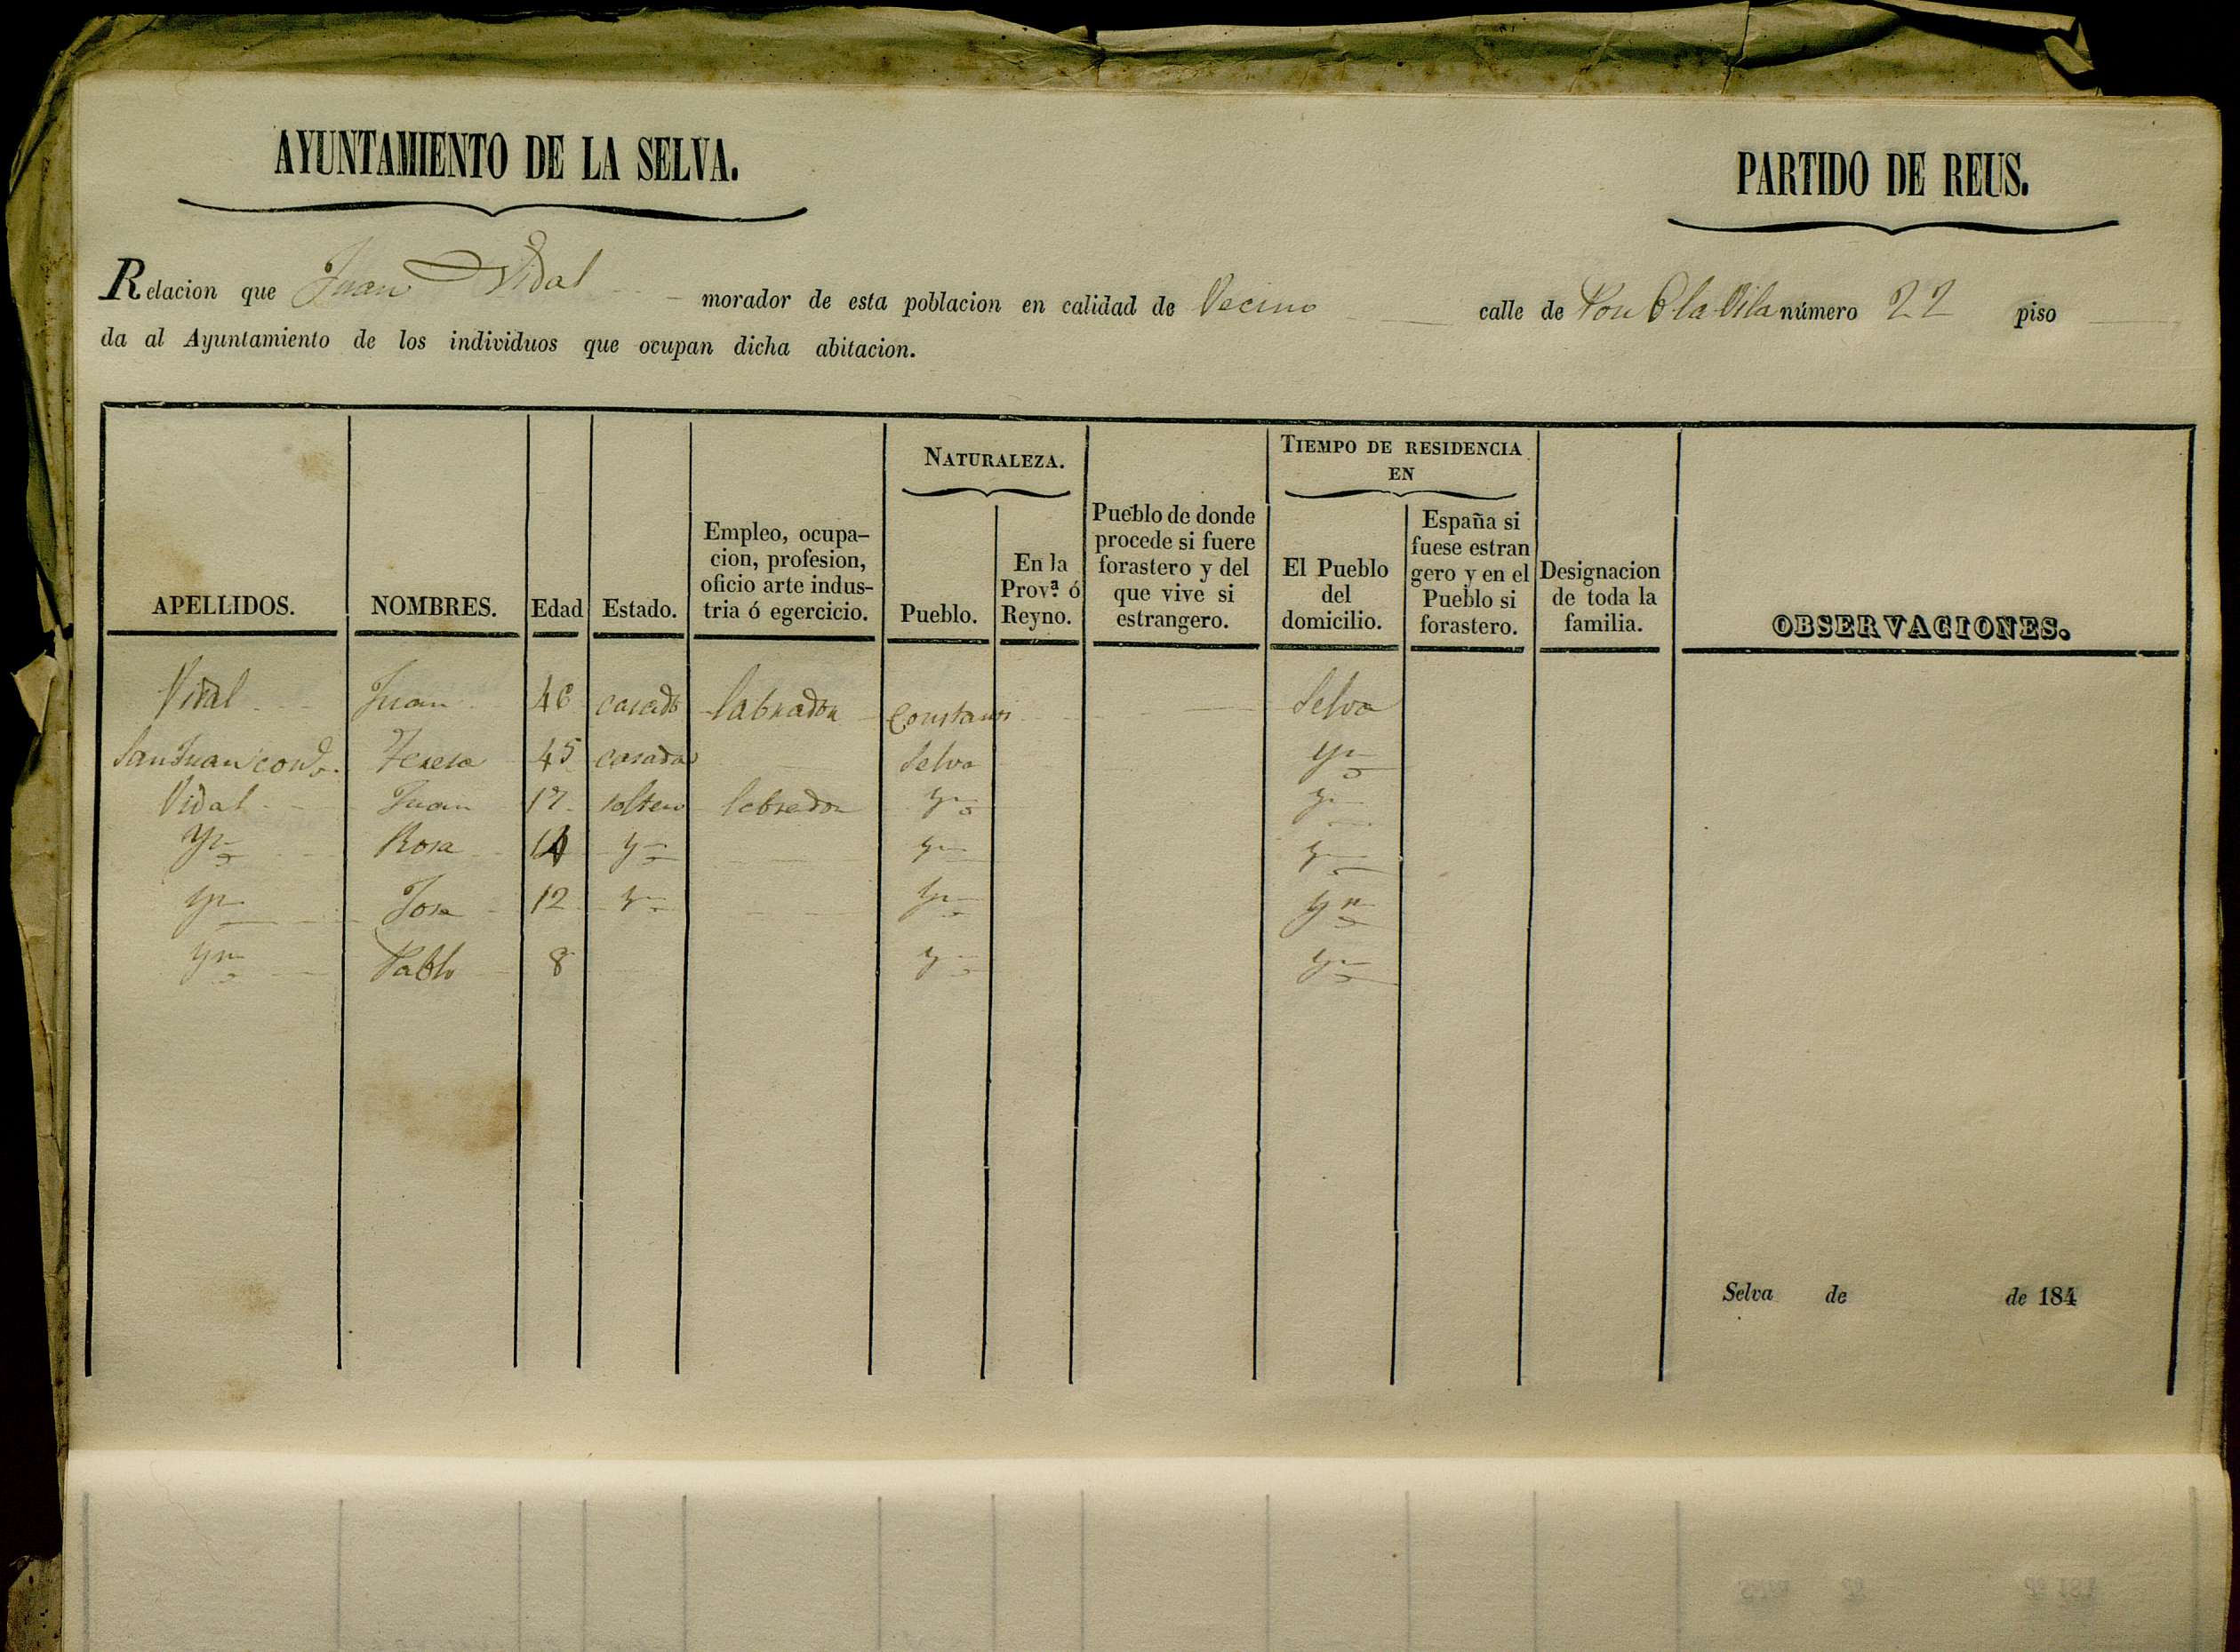 AYUNTAMIENTO DE LA SELVA.
PARTIDO DE REUS.
Relacion que Juan Vidal morador de esta poblacion en calidad de Vecino calle de la Vila número 22 piso
da al Ayuntamiento de los individuos que ocupan dicha abitacion.
NATURALEZA.
TIEMPO DE RESIDENCIA EN
APELLIDOS.
NOMBRES.
Edad
Estado.
Empleo, ocupa-
cion, profesion,
oficio arte indus-
tria ó egercicio.
Pueblo.
En la
Prov.ª ó
Reyno.
Pueblo de donde
procede si fuere
forastero y del
que vive si
estrangero.
El Pueblo
del
domicilio.
España si
fuese estran
gero y en el
Pueblo si
forastero.
Designacion
de toda la
familia.
OBSERVACIONES.
Vidal Juan 46 casado labrador Constanti Selva
SanJuan Teresa 45 casada Selva Yn
Vidal Juan 17 soltero labrador Yn Yn
Yn Rosa 14 Yn Yn Yn
Yn Jose 12 Yn Yn Yn
Yn Pablo 8 Yn Yn
Selva de de 184